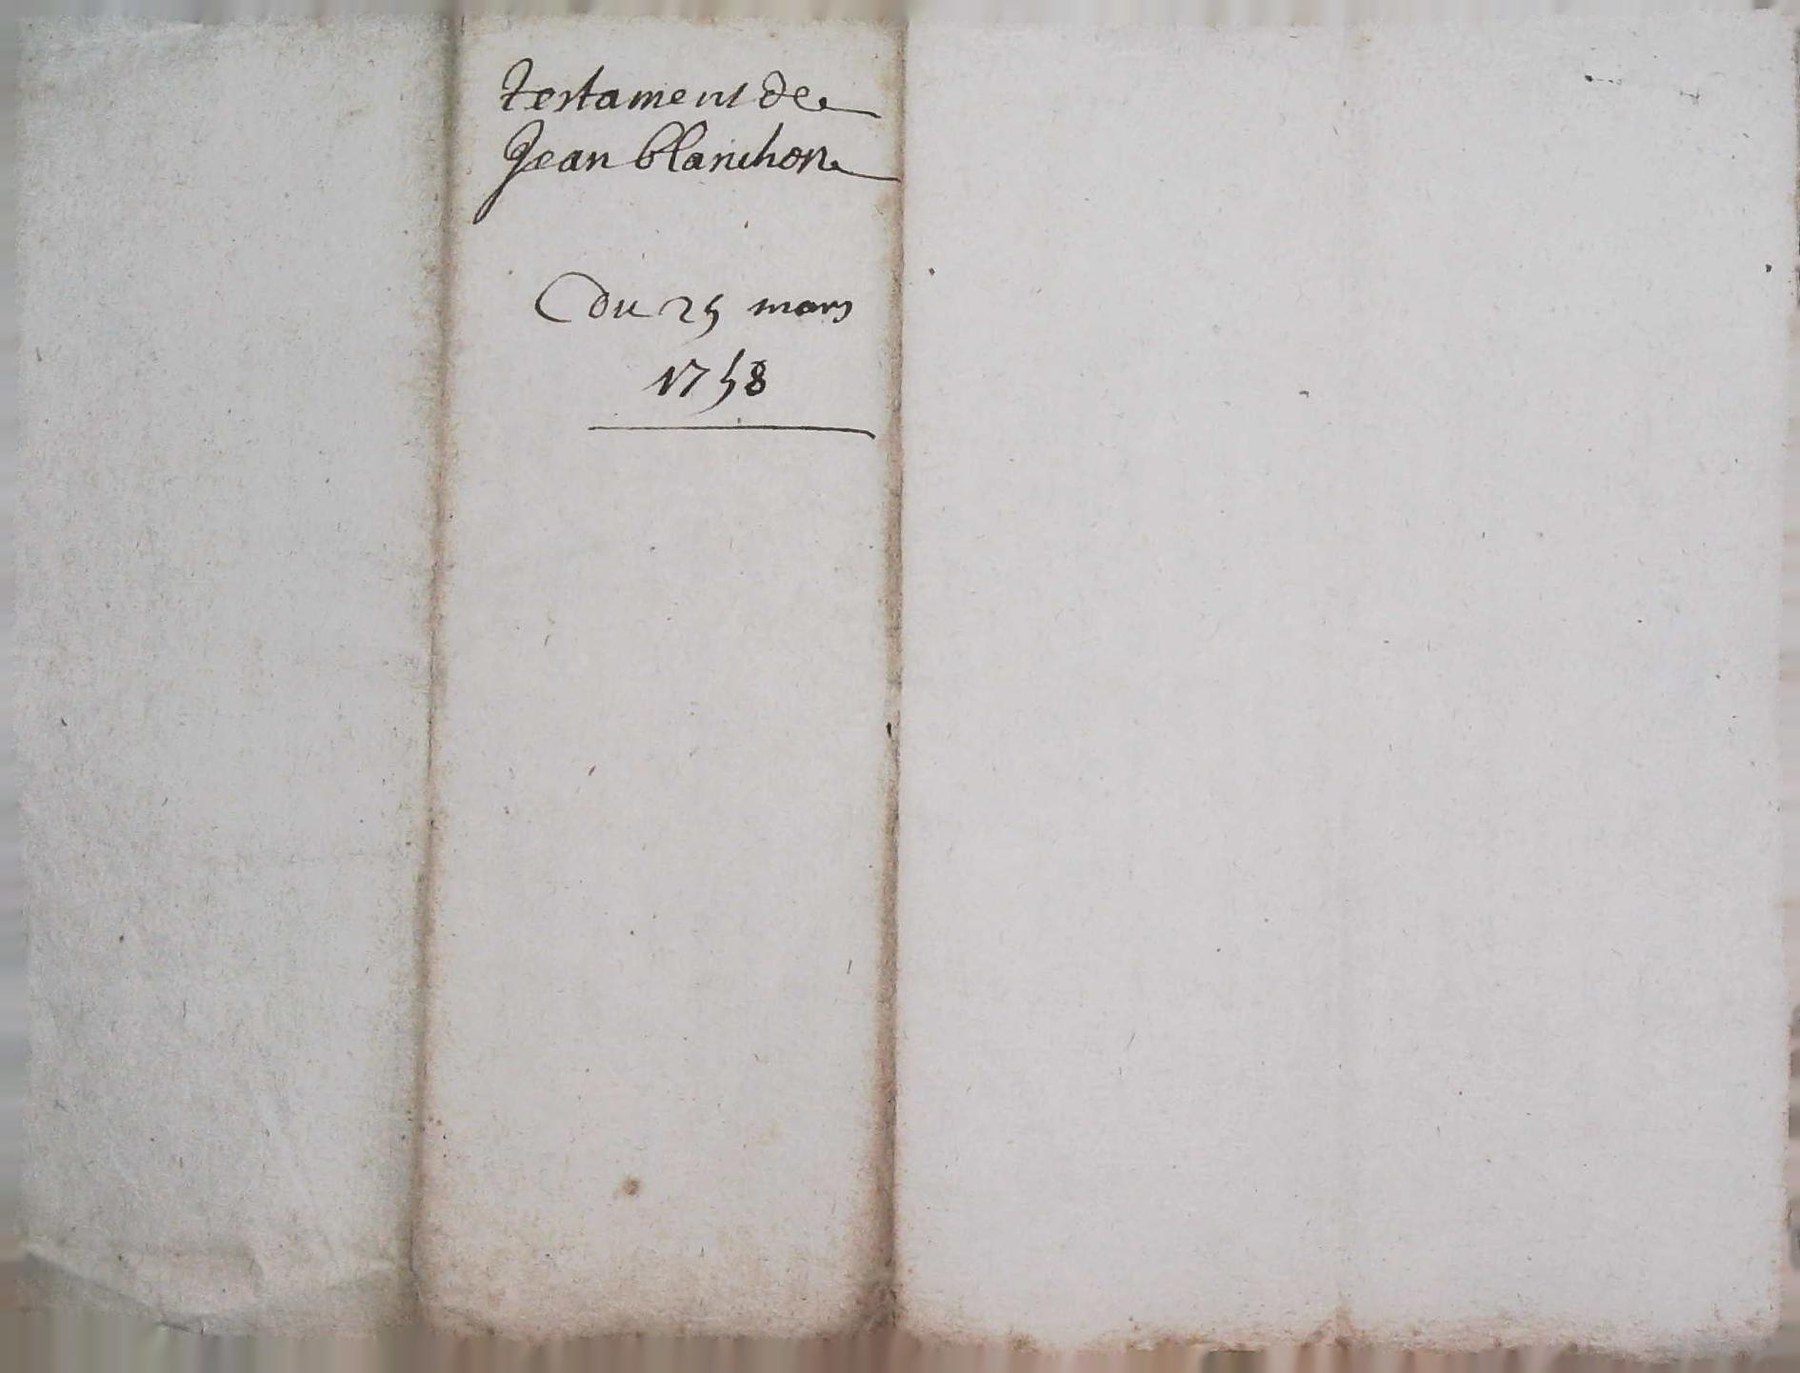 testament de
Jean blanchon
Du 25 mars
1758